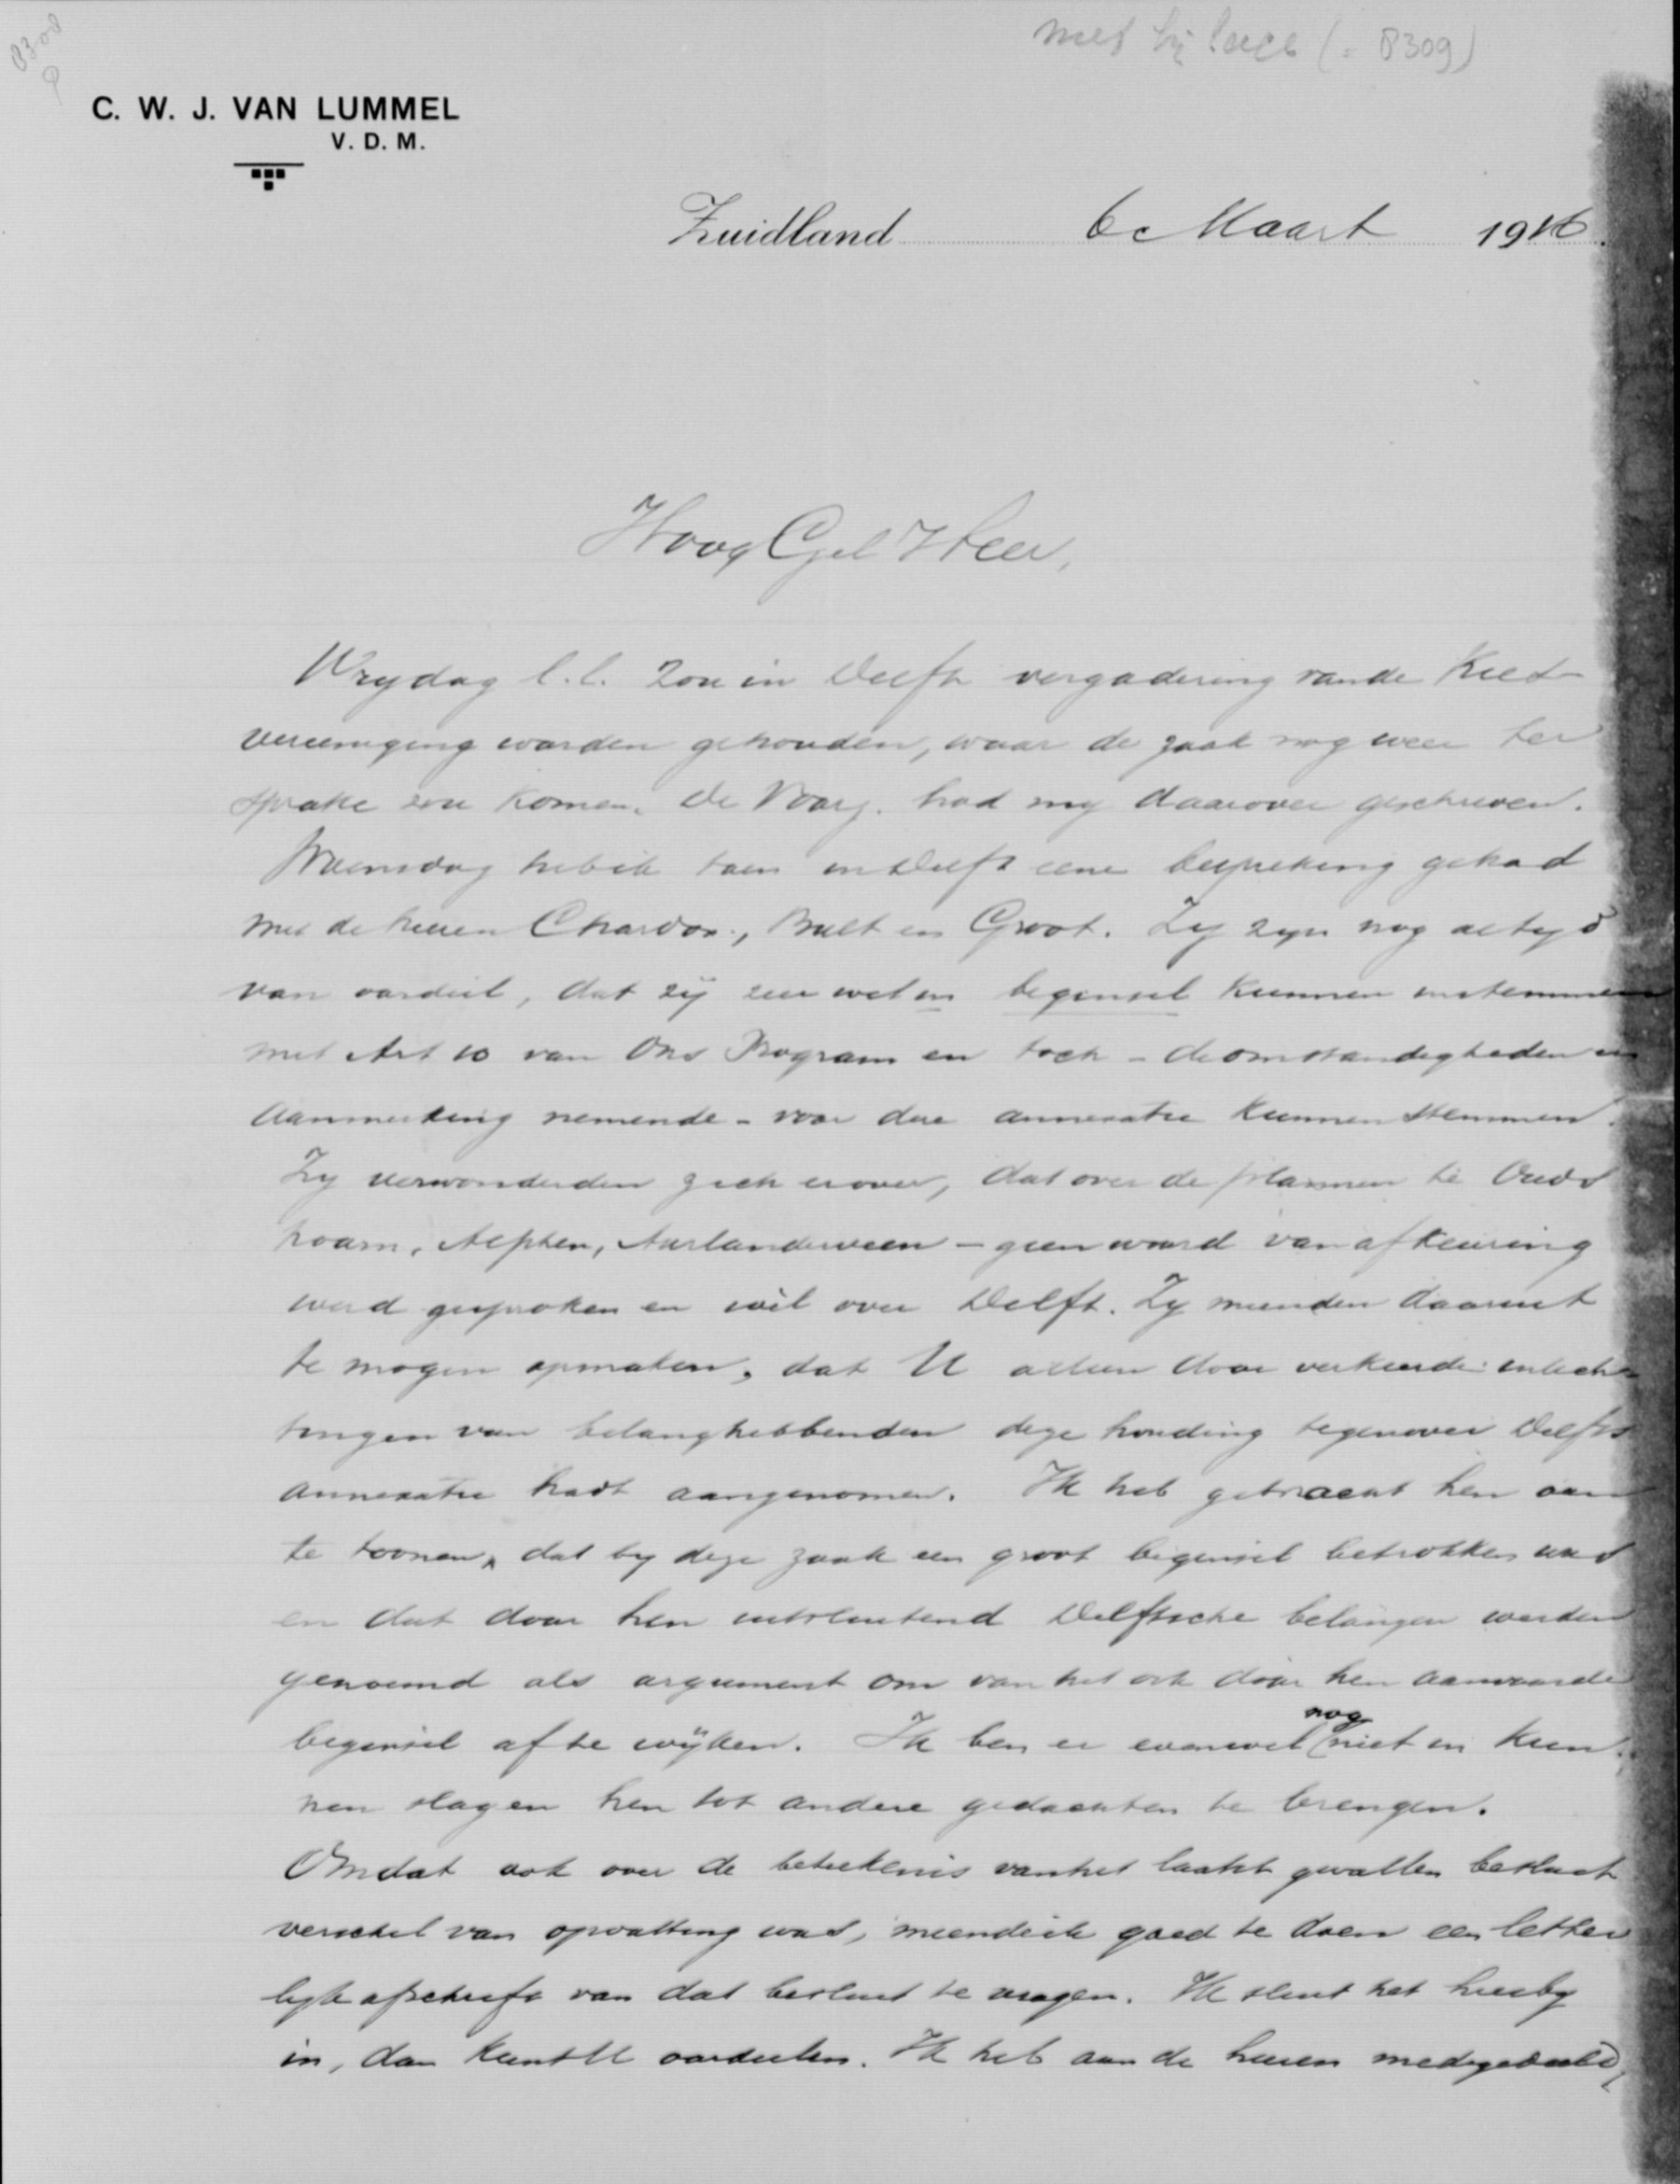 8308
met bijlage (= 8309)
C. W. J. VAN LUMMEL
V. D. M.
Zuidland 6 Maart 1916.
HoogGel Heer,
Vrydag l.l. zou in Delft vergadering van de Kies-
vereeniging worden gehouden, waar de zaak nog weer ter
sprake zou komen. De Voorz. had my daarover geschreven.
Woensdag heb ik toen in Delft eene bespreking gehad
met de heeren Chardon, Bult en Groot. Zy zyn nog altyd
van oordeel, dat zij zeer wel in beginsel kunnen instemmen
met Art 10 van Ons Program en toch - de omstandigheden in
aanmerking nemende - voor deze annexatie kunnen stemmen.
Zy verwonderden zich erover, dat over de plannen te Ouds
hoorn, Alphen, Aarlanderveen - geen woord van afkeuring
werd gesproken en wèl over Delft. Zy meenden daaruit
te mogen opmaken, dat U alleen door verkeerde inlich-
tingen van belanghebbenden deze houding tegenover Delfts
annexatie hadt aangenomen. Ik heb getracht hen aan
te toonen, dat by deze zaak een groot beginsel betrokken was
en dat door hen uitsluitend Delftsche belangen werden
genoemd als argument om van het ook door hen aanvaarde
beginsel af te wijken. Ik ben er evenwel nog niet in kun-
nen slagen hen tot andere gedachten te brengen.
Omdat ook over de beteekenis van het laatst gevallen besluit
verschil van opvatting was, meende ik goed te doen een letter
lyk afschrift van dat besluit te vragen. Ik sluit het hierby
in, dan kunt U oordeelen. Ik heb aan de heeren medegedeeld,